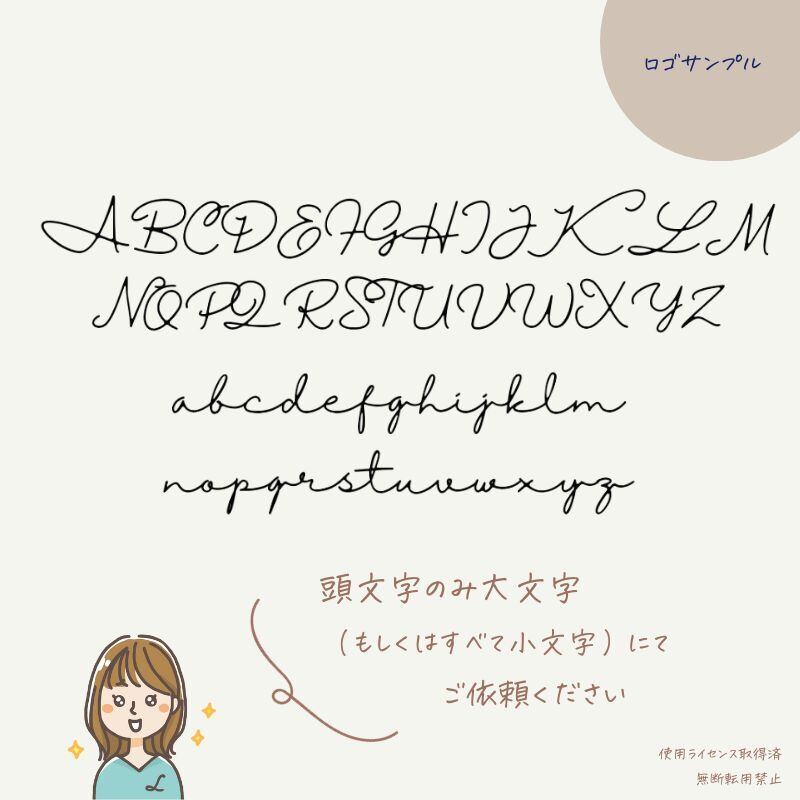 ロゴサンプル
ABCDEFGHIJKLM
NOPQRSTUVWXYZ
abcdefghijklm
nopqrstuvwxyz
頭文字のみ大文字
(もしくはすべて小文字)にて
ご依頼ください
L
使用ライセンス取得済
無断転用禁止